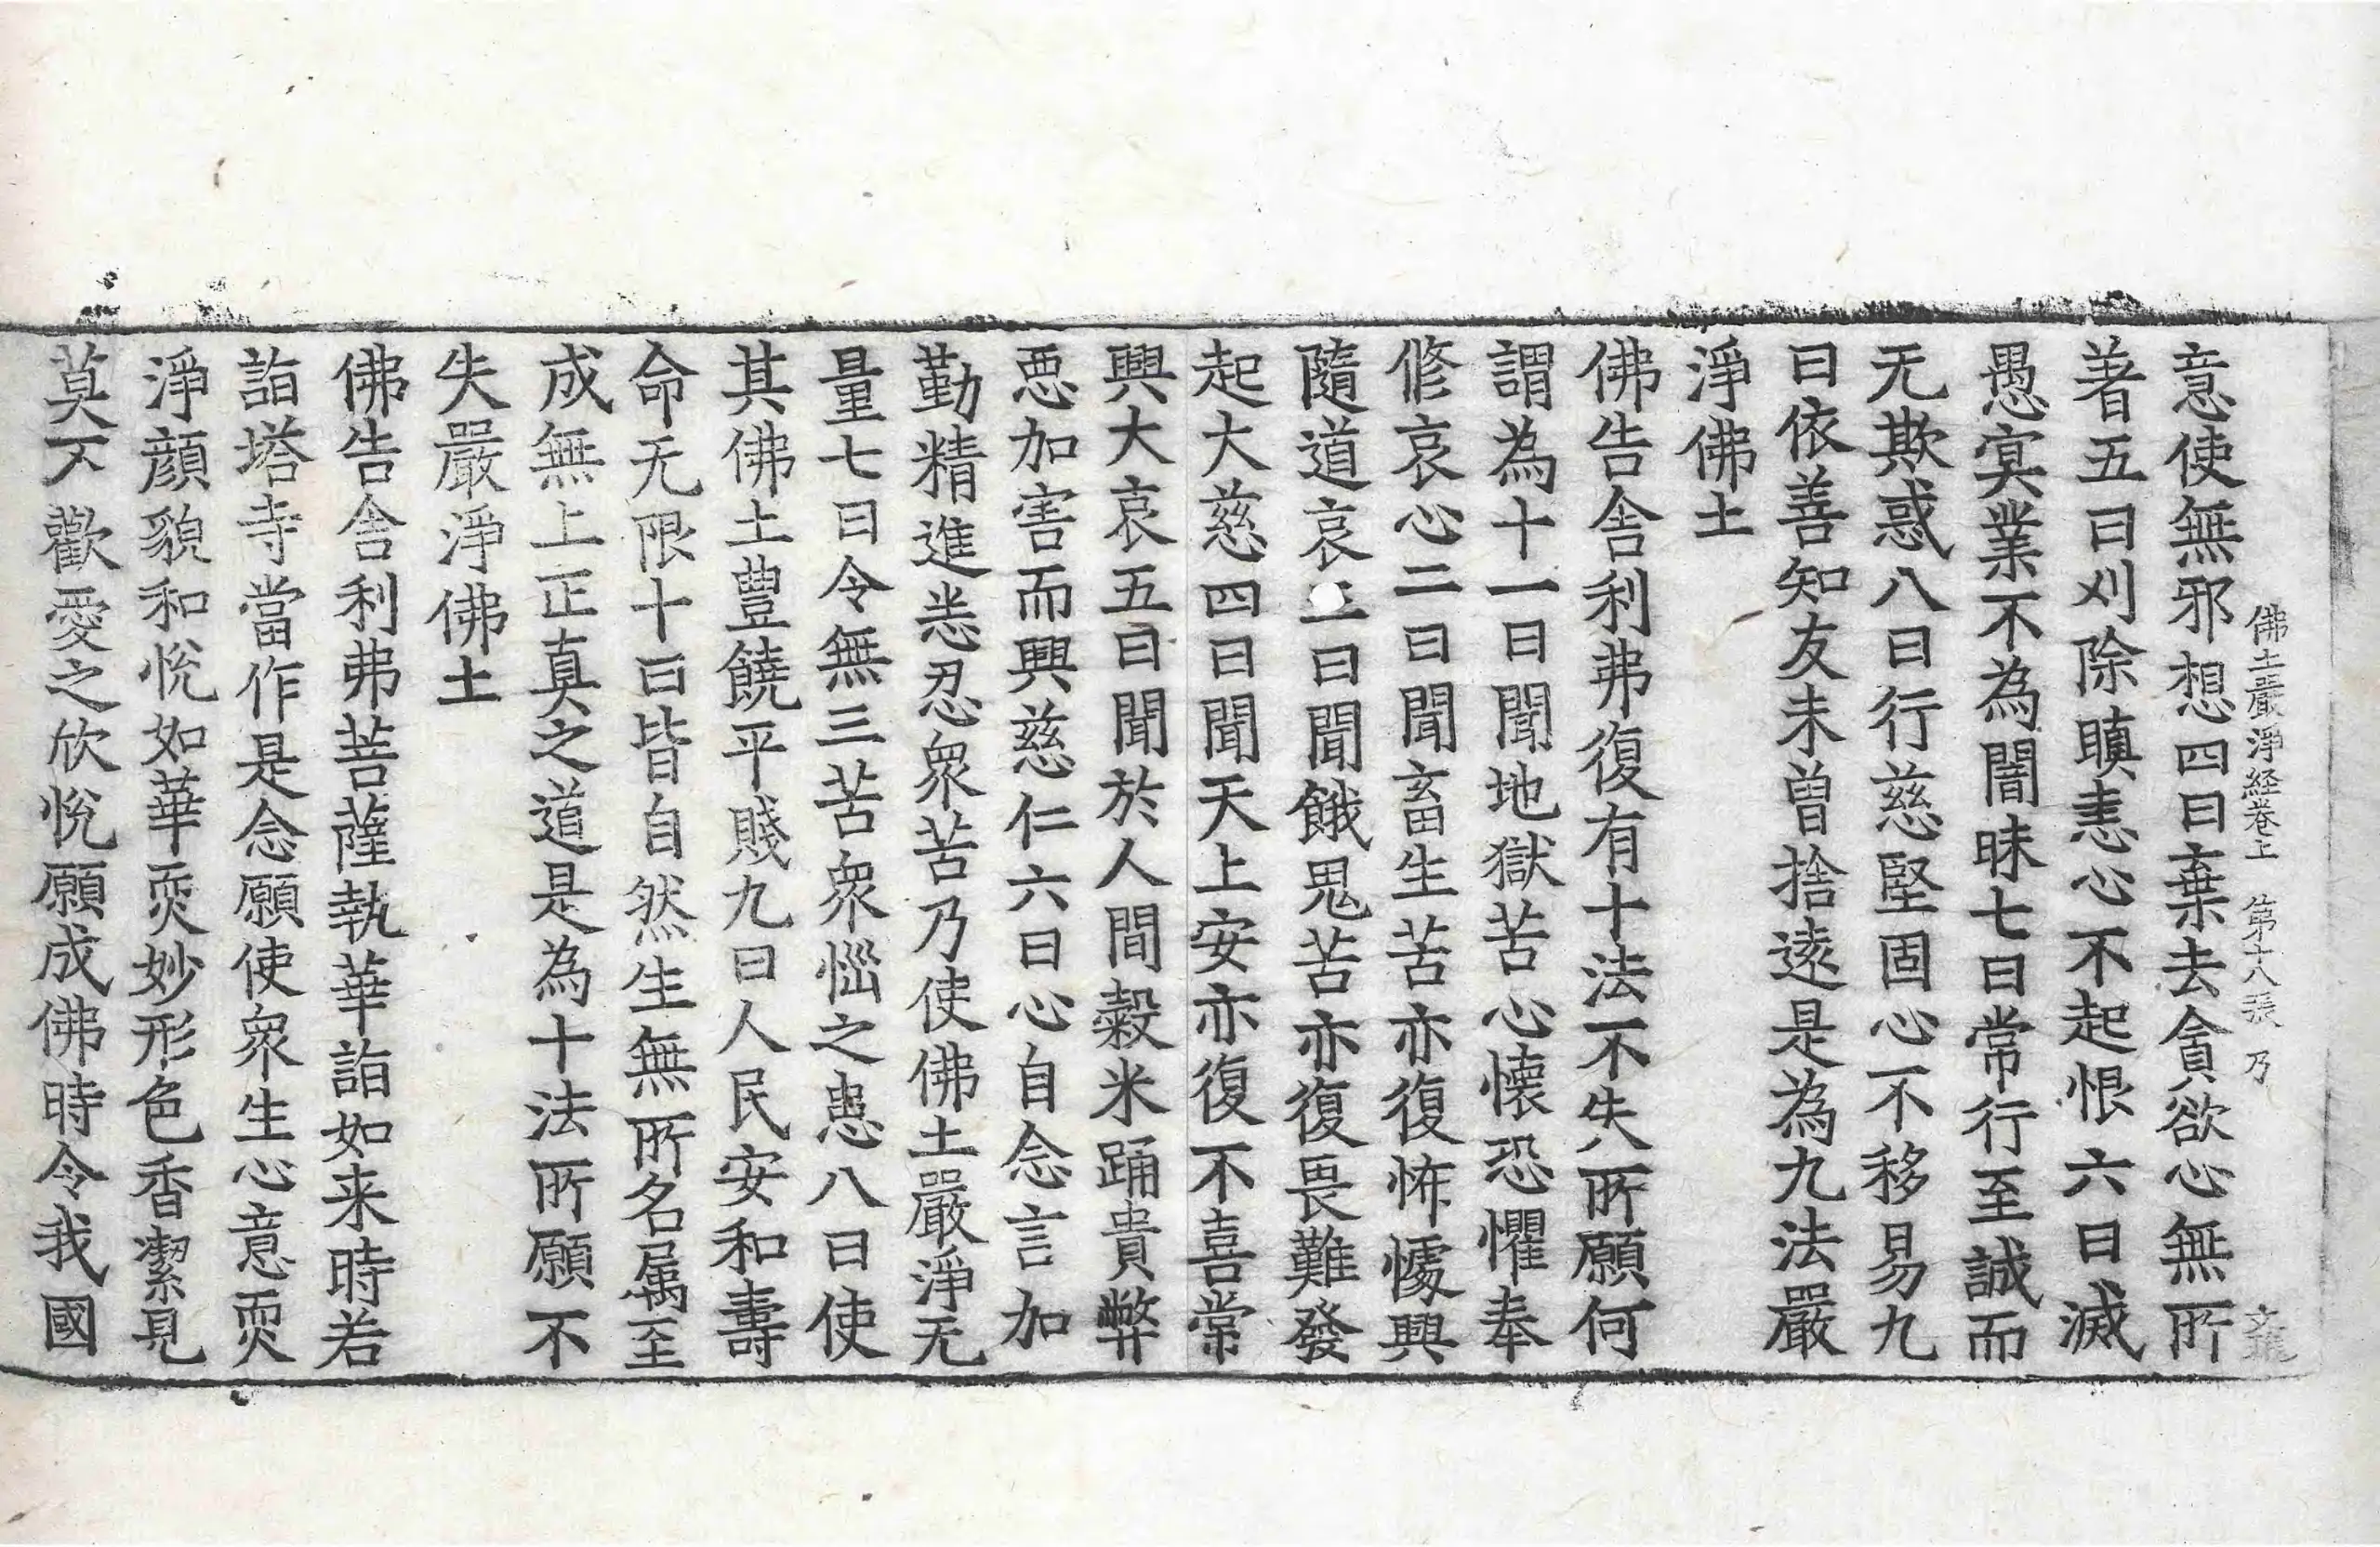 佛土嚴淨経卷上 第十八張 乃
意使無邪想四曰棄去貪欲心無所
著五曰刈除瞋恚心不起恨六曰滅
愚冥業不為闇昧七曰常行至誠而
无欺惑八曰行慈堅固心不移易九
曰依善知友未曾捨遠是為九法嚴
淨佛土
佛告舎利弗復有十法不失所願何
謂為十一曰聞地獄苦心懐恐懼奉
修哀心二曰聞畜生苦亦復怖懅興
隨道哀三曰聞餓鬼苦亦復畏難發
起大慈四曰聞天上安亦復不喜常
興大哀五曰聞於人間穀米踊貴弊
悪加害而興慈仁六曰心自念言加
勤精進悉忍衆苦乃使佛土嚴淨无
量七曰令無三苦衆惱之患八曰使
其佛土豊饒平賤九曰人民安和壽
命无限十曰皆自然生無所名属至
成無上正真之道是為十法所願不
失嚴淨佛土
佛告舎利弗菩薩執華詣如来時若
詣塔寺當作是念願使衆生心意耎
淨顔貌和悅如華耎妙形色香潔見
莫不歡愛之欣悅願成佛時令我國